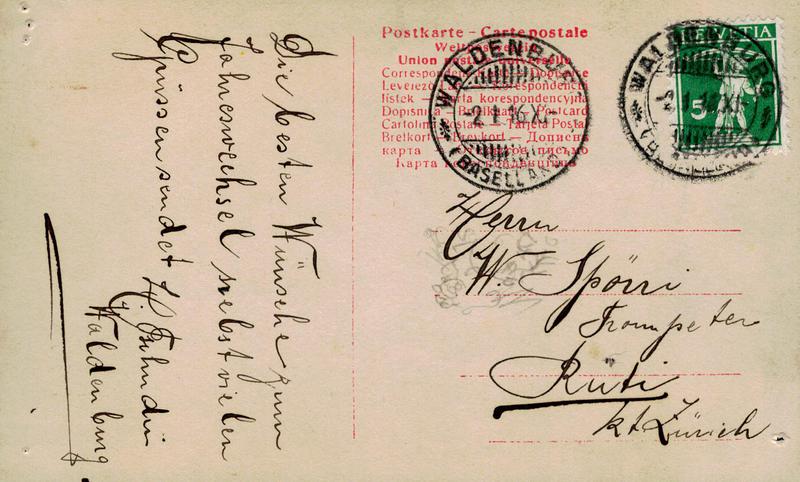 Die besten Wünsche zum
Jahreswechsel nebst vielen
Grüssen sendet H.
Waldenburg
Postkarte – Carte postale
Weltpostverein
Union postale universelle
Correspondenz-Karte – Dopisnice
Levelező-Lap – Korespondencni
listek – Karta korespondencyjna
Dopisnica – Briefkaart – Postcard
Cartolina postale – Tarjeta Postal
Brefkort – Brevkort – Дописна
карта – Открытое письмо
Карта корреспонденција
WALDENBURG
-2.I.16.XI-
(BASELLAND)
WALDENBURG
-2.I.16.XI-
(BASELLAND)
HELVETIA
5
Herrn
W. Spörri
Trompeter
Rüti
kt Zürich